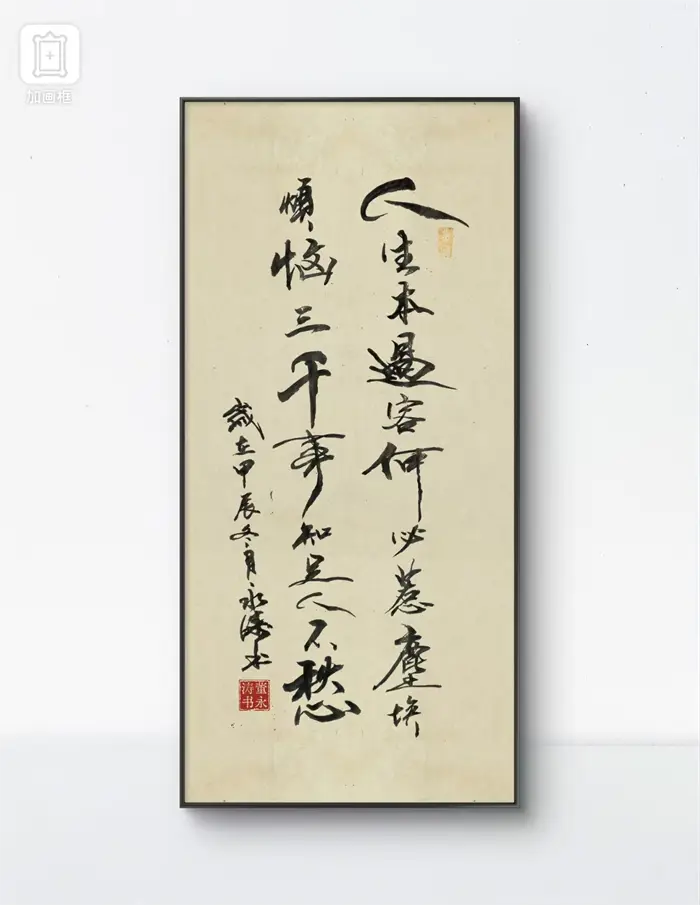 加画框
人生本過客何必惹塵埃
煩惱三千事知足人不愁
歲在甲辰冬月永濤书
董永
涛书